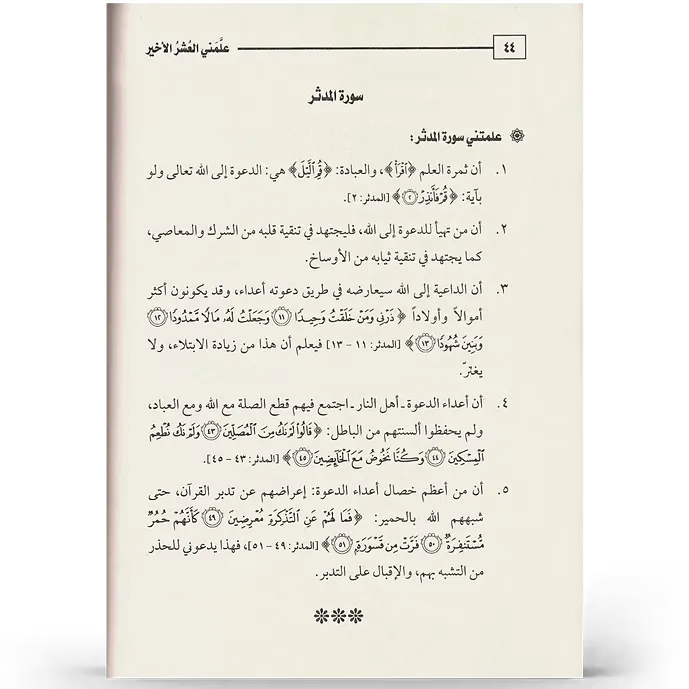 ٤٤ علَّمَني العُشرُ الأخير
سورة المدثر
علمتني سورة المدثر:
١. أن ثمرة العلم ﴿ٱقۡرَأۡ﴾، والعبادة: ﴿قُمِ ٱلَّيۡلَ﴾ هي: الدعوة إلى الله تعالى ولو
بآية: ﴿قُمۡ فَأَنذِرۡ ٢﴾ [المدثر: ٢].
٢. أن من تهيأ للدعوة إلى الله، فليجتهد في تنقية قلبه من الشرك والمعاصي،
كما يجتهد في تنقية ثيابه من الأوساخ.
٣. أن الداعية إلى الله سيعارضه في طريق دعوته أعداء، وقد يكونون أكثر
أموالاً وأولاداً ﴿ذَرۡنِي وَمَنۡ خَلَقۡتُ وَحِيدٗا ١١ وَجَعَلۡتُ لَهُۥ مَالٗا مَّمۡدُودٗا ١٢
وَبَنِينَ شُهُودٗا ١٣﴾ [المدثر: ١١ - ١٣] فيعلم أن هذا من زيادة الابتلاء، ولا
يغترّ.
٤. أن أعداء الدعوة ـ أهل النار ـ اجتمع فيهم قطع الصلة مع الله ومع العباد،
ولم يحفظوا ألسنتهم من الباطل: ﴿قَالُواْ لَمۡ نَكُ مِنَ ٱلۡمُصَلِّينَ ٤٣ وَلَمۡ نَكُ نُطۡعِمُ
ٱلۡمِسۡكِينَ ٤٤ وَكُنَّا نَخُوضُ مَعَ ٱلۡخَآئِضِينَ ٤٥﴾ [المدثر: ٤٣ - ٤٥].
٥. أن من أعظم خصال أعداء الدعوة: إعراضهم عن تدبر القرآن، حتى
شبههم الله بالحمير: ﴿فَمَا لَهُمۡ عَنِ ٱلتَّذۡكِرَةِ مُعۡرِضِينَ ٤٩ كَأَنَّهُمۡ حُمُرٞ
مُّسۡتَنفِرَةٞ ٥٠ فَرَّتۡ مِن قَسۡوَرَةِۭ ٥١﴾ [المدثر: ٤٩ - ٥١]، فهذا يدعوني للحذر
من التشبه بهم، والإقبال على التدبر.